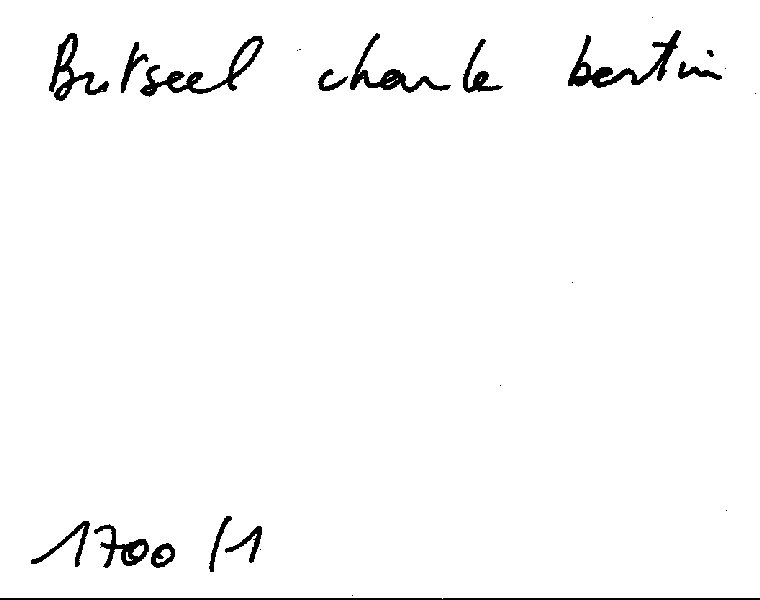 Butseel charle bertin
1700 /1